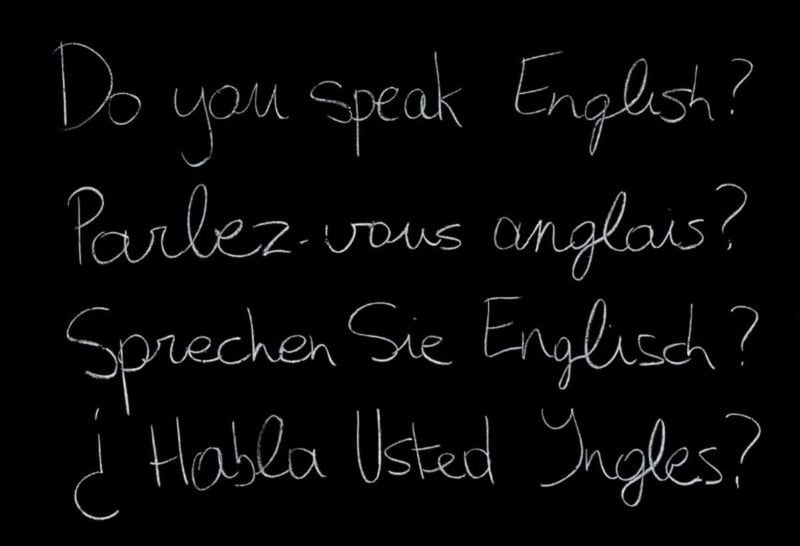 Do you speak English?
Parlez-vous anglais?
Sprechen Sie Englisch?
¿ Habla Usted Yngles?